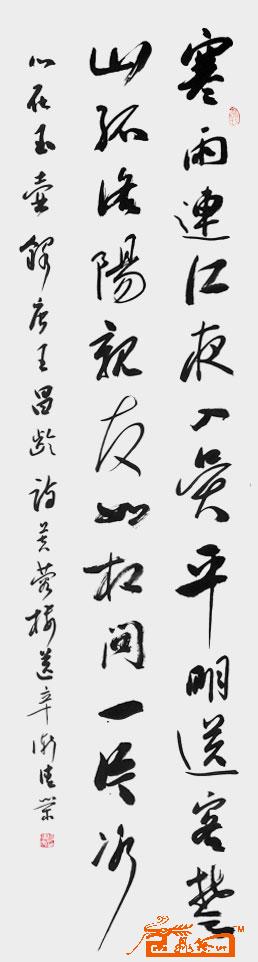 寒雨連江夜入吳平明送客楚
山孤洛陽親友如相問一片冰
心在玉壺錄唐王昌齡詩芙蓉樓送辛漸